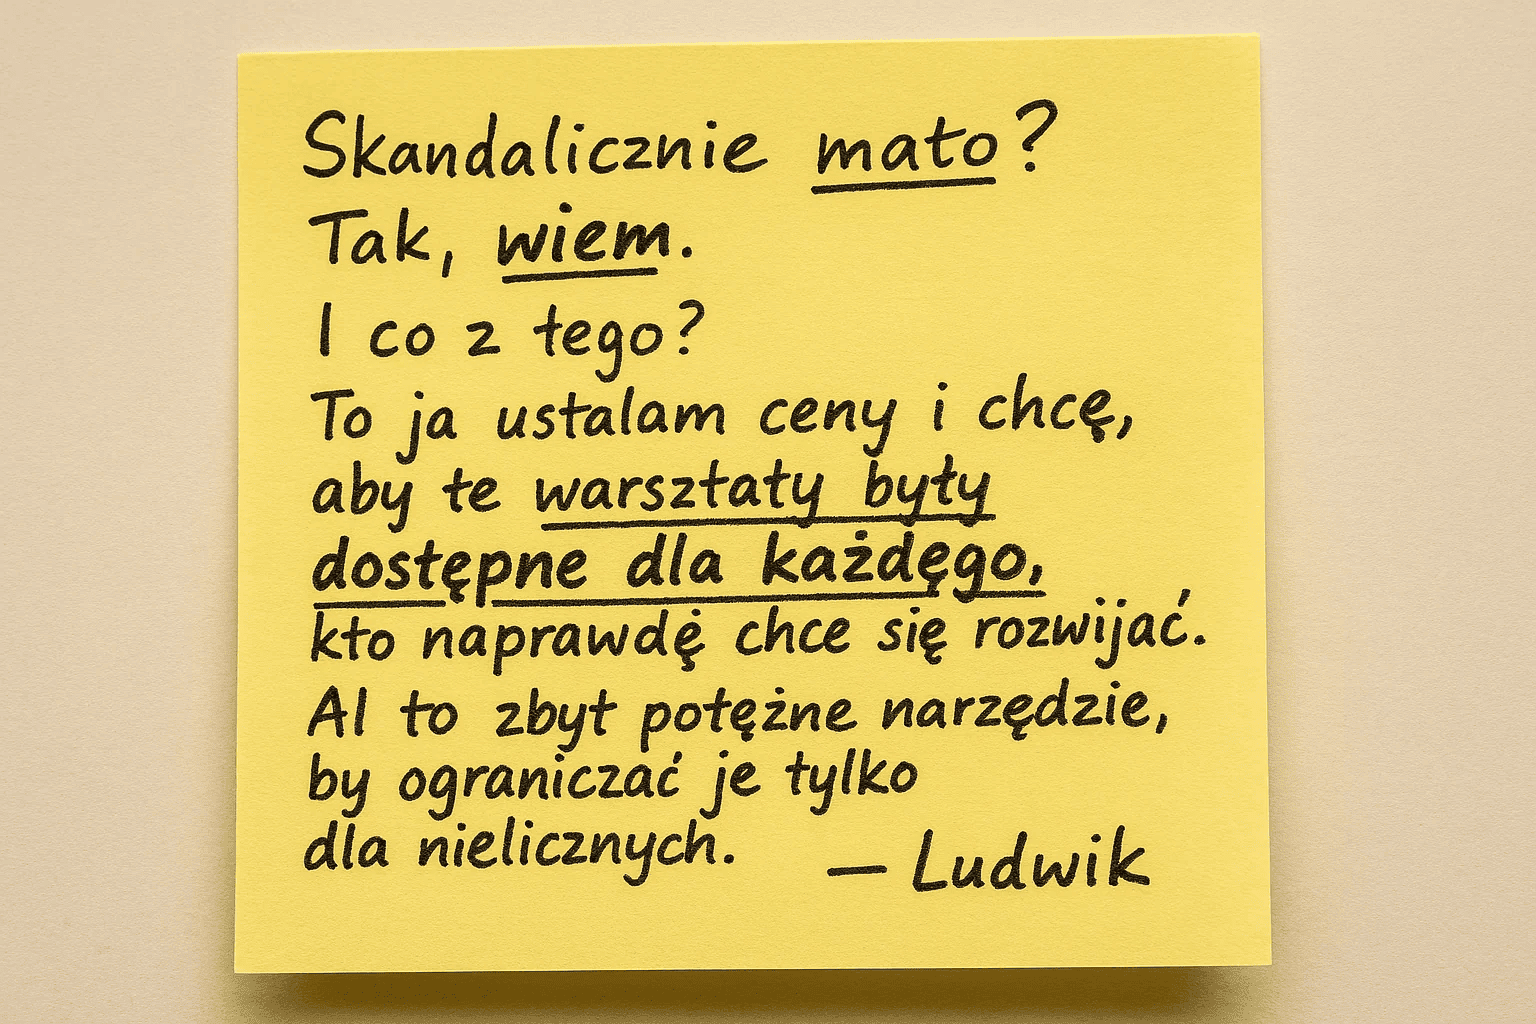 Skandalicznie mato?
Tak, wiem.
I co z tego?
To ja ustalam ceny i chcę,
aby te warsztaty były
dostępne dla każdęgo,
kto naprawdę chce się rozwijać.
AI to zbyt potężne narzędzie,
by ograniczać je tylko
dla nielicznych.
— Ludwik